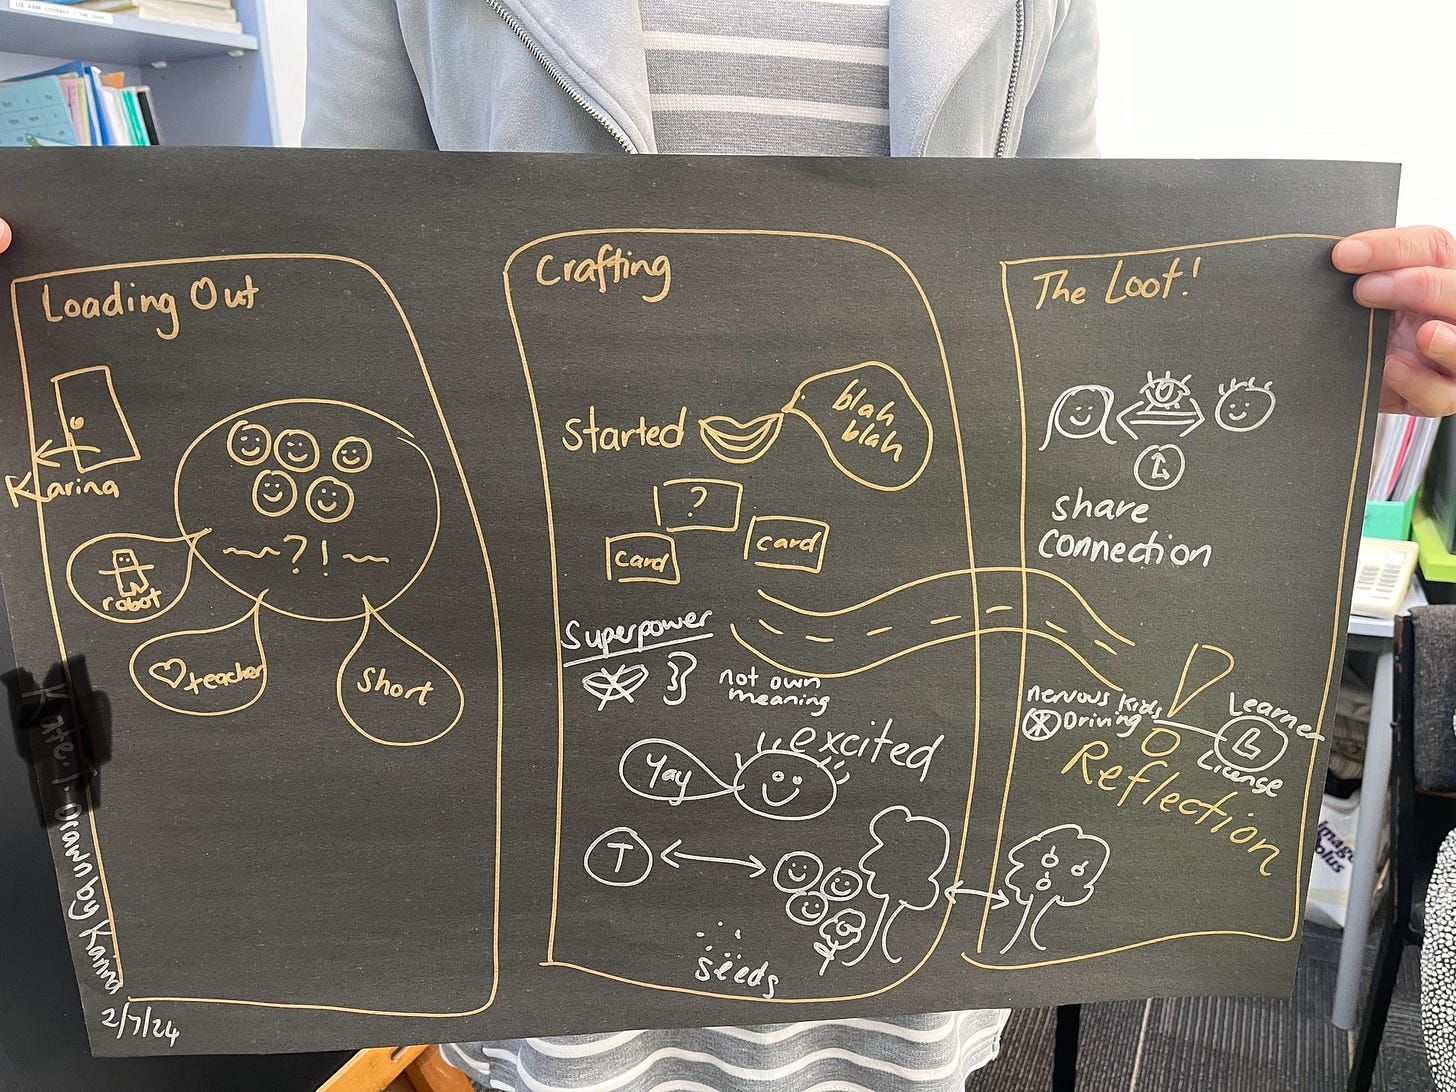 LIZ KANE LITERACY - THE CODE
Loading Out
Karina
?!
robot
teacher
short
Crafting
Started
blah
blah
?
card
card
Superpower
not own
meaning
excited
Yay
T
seeds
The Loot!
L
share
connection
nervous kids
Driving
Learner
L
License
Reflection
Drawn by Karina
2/7/24